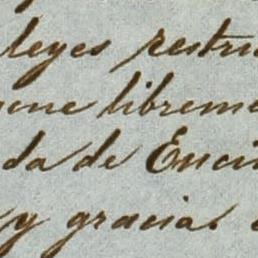 leyes restri
one libreme
da de Encin
y gracias